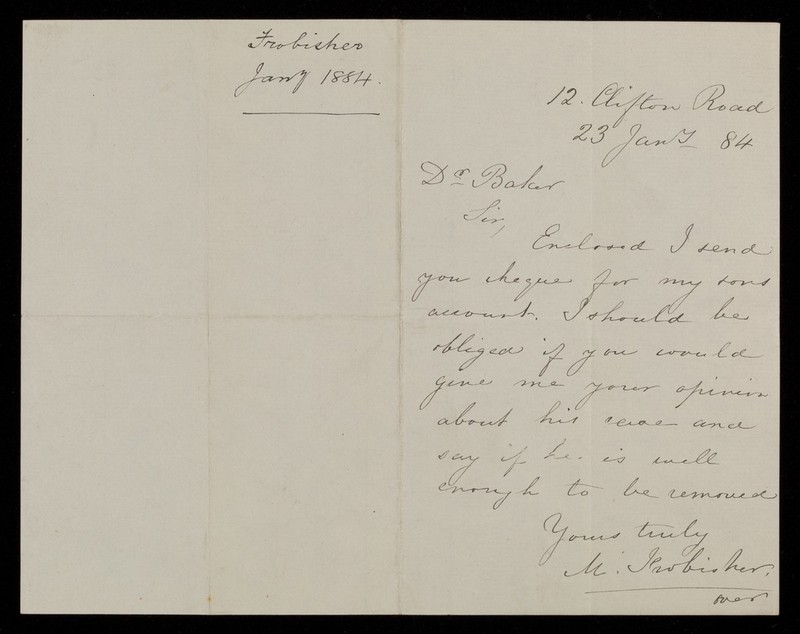 Frobisher
Jany 1884.
12. Clifton Road
23 Jany 84
Dr Baker
Sir,
Enclosed I send
you cheque for my sons
account. I should be
obliged if you would
give me your opinion
about his case and
say if he is well
enough to be removed
Yours truly
M. Frobisher.
over